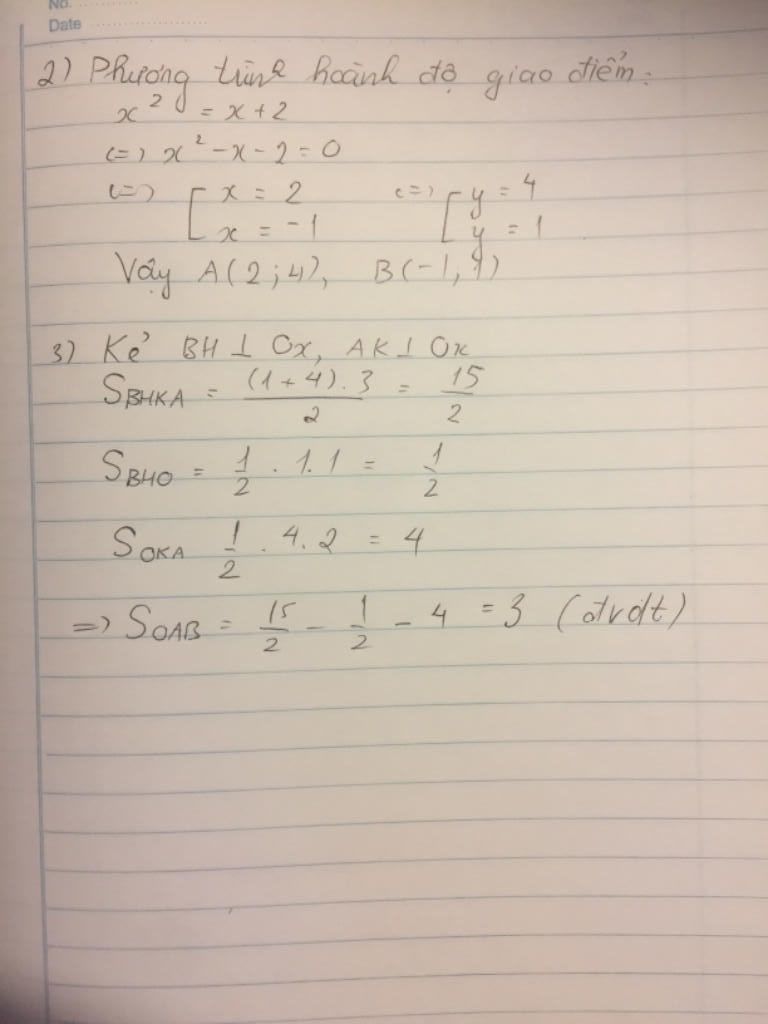 No.
Date
2) Phương trình hoành độ giao điểm:
x² = x + 2
<=> x² - x - 2 = 0
<=> [ x = 2 <=> [ y = 4
x = -1 y = 1
Vậy A(2;4), B(-1,1)
3) Kẻ BH ⊥ Ox, AK ⊥ Ox
S_BHKA = (1+4).3/2 = 15/2
S_BHO = 1/2 . 1.1 = 1/2
S_OKA 1/2 . 4.2 = 4
=> S_OAB = 15/2 - 1/2 - 4 = 3 (đvdt)